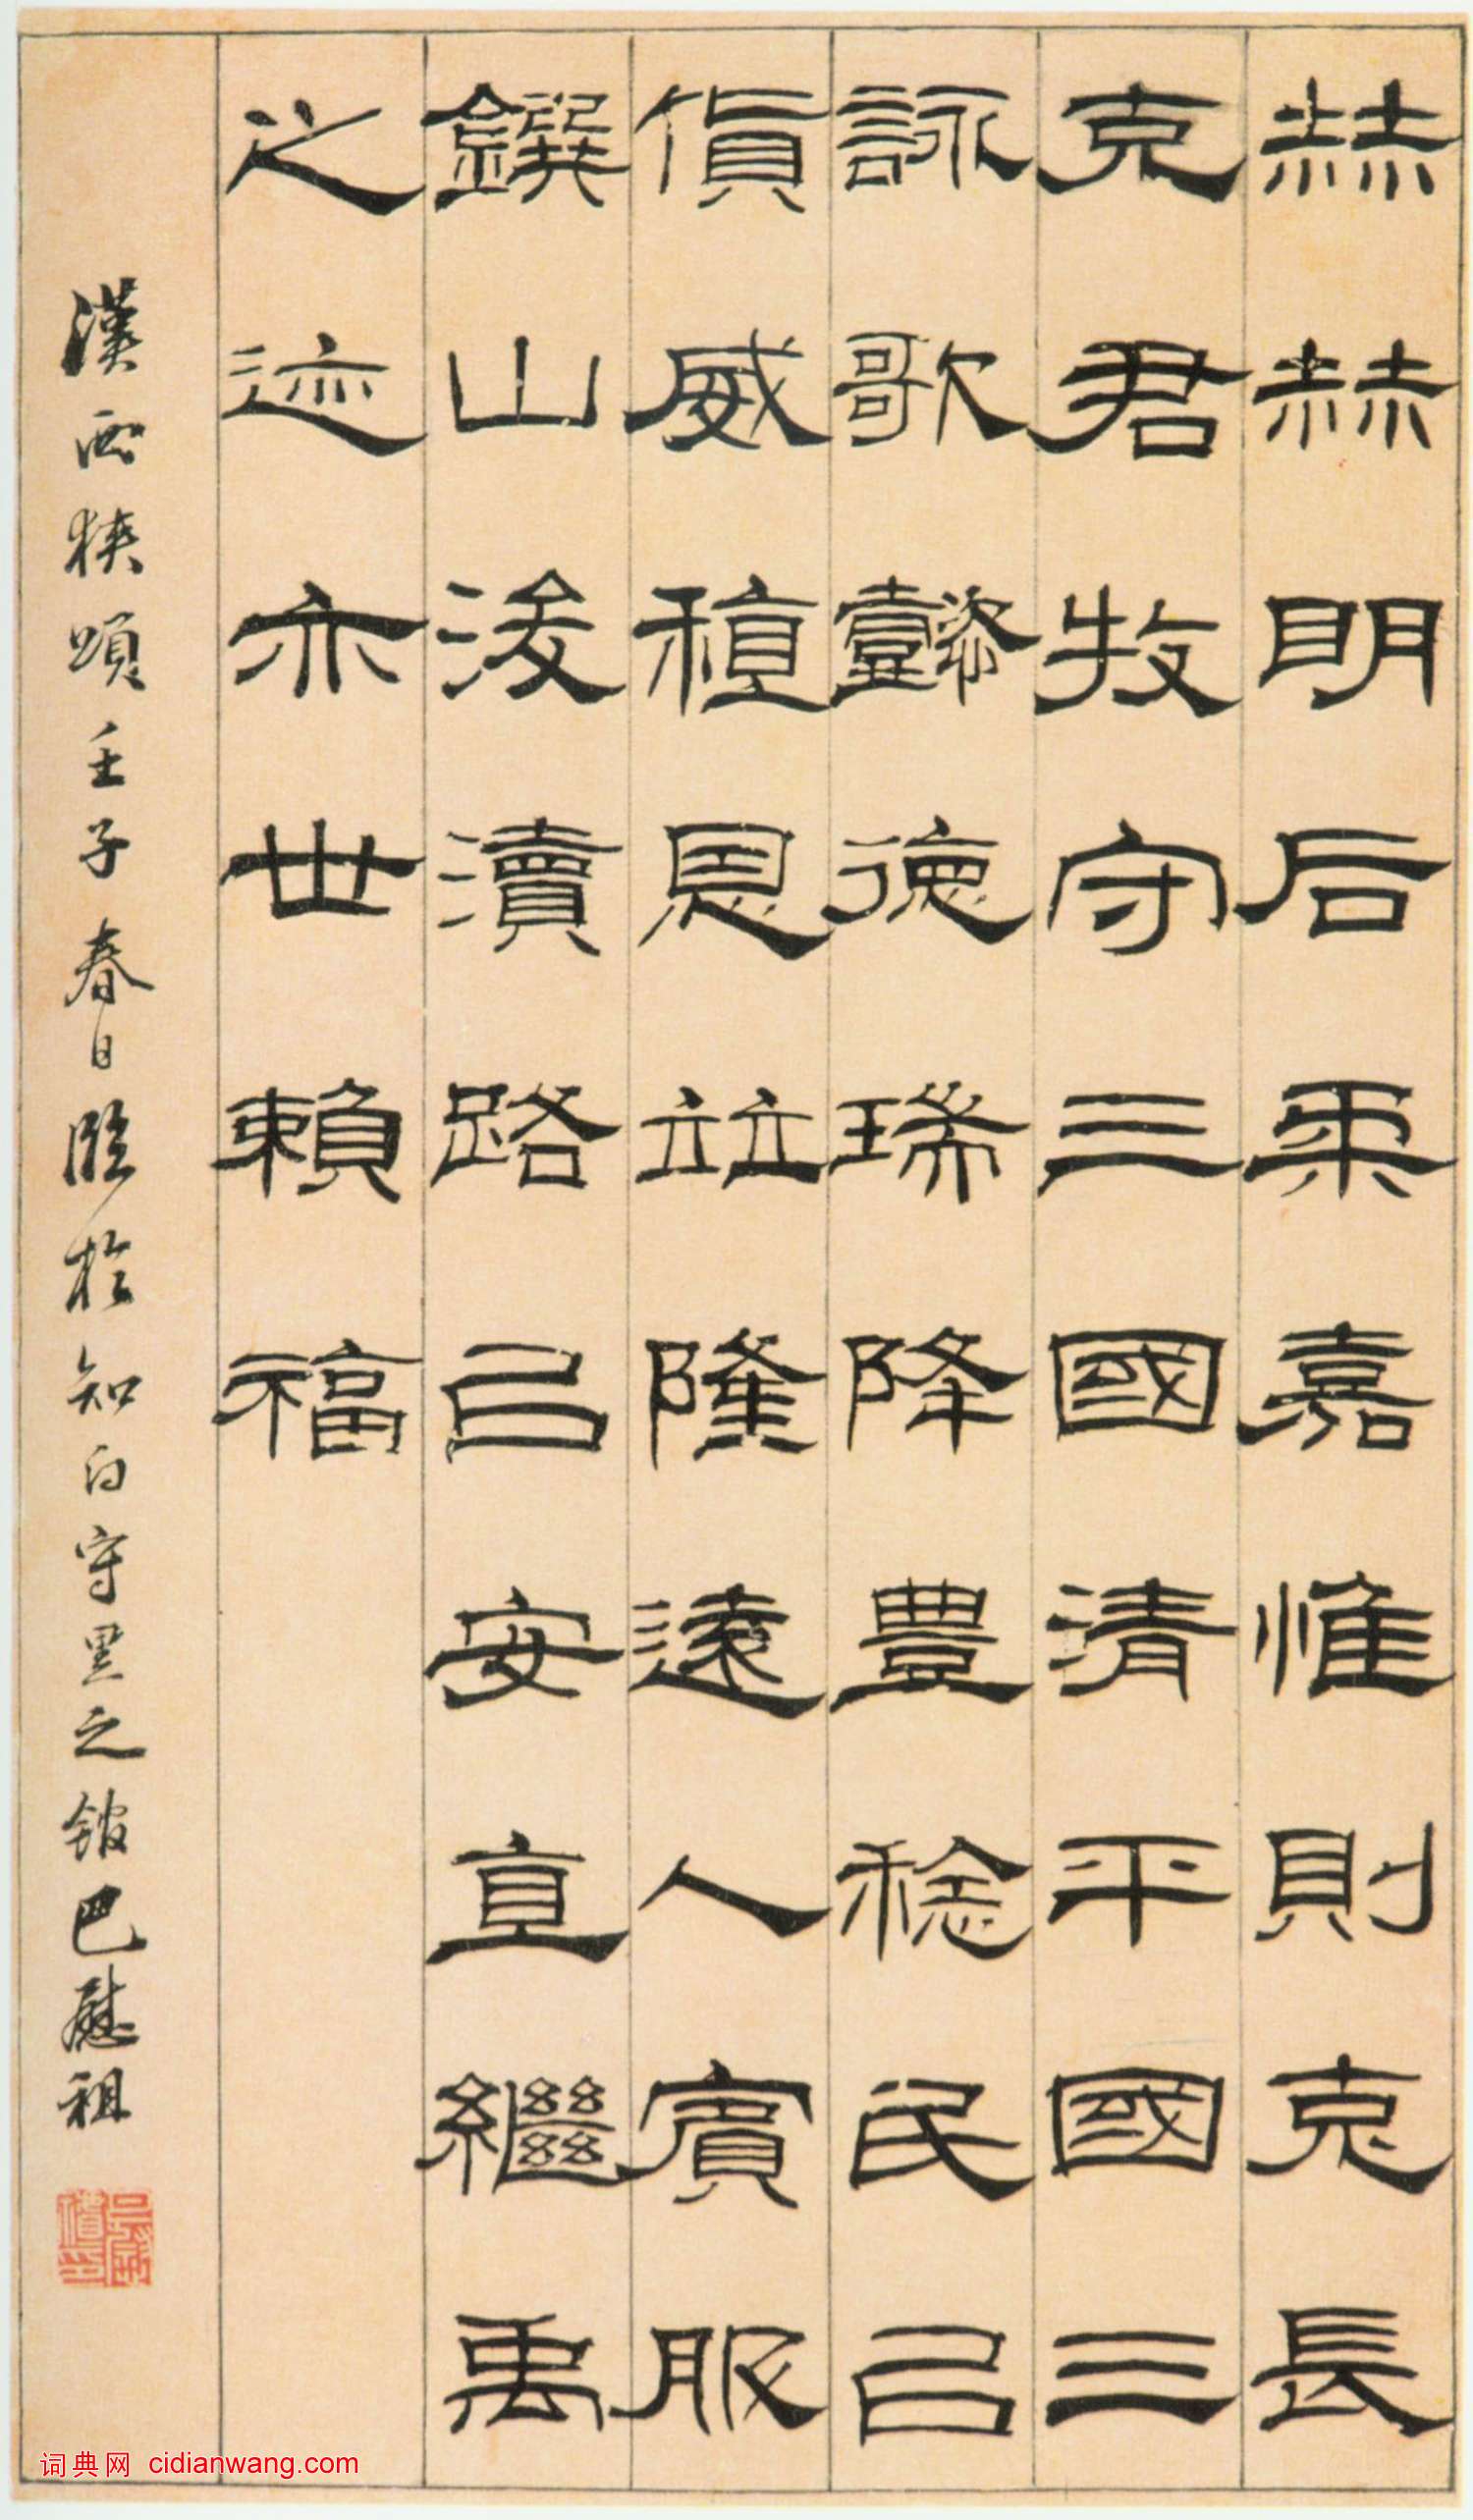 赫赫明后柔嘉惟則克長
克君牧守三國清平國三
詠歌懿德瑞降豐稔民㠯
貨威稙恩竝隆遠人賓服
鐉山浚瀆路㠯安直繼禹
之迹亦世賴福
漢西狹頌壬子春日臨於知白守黑之館巴慰祖
词典网 cidianwang.com